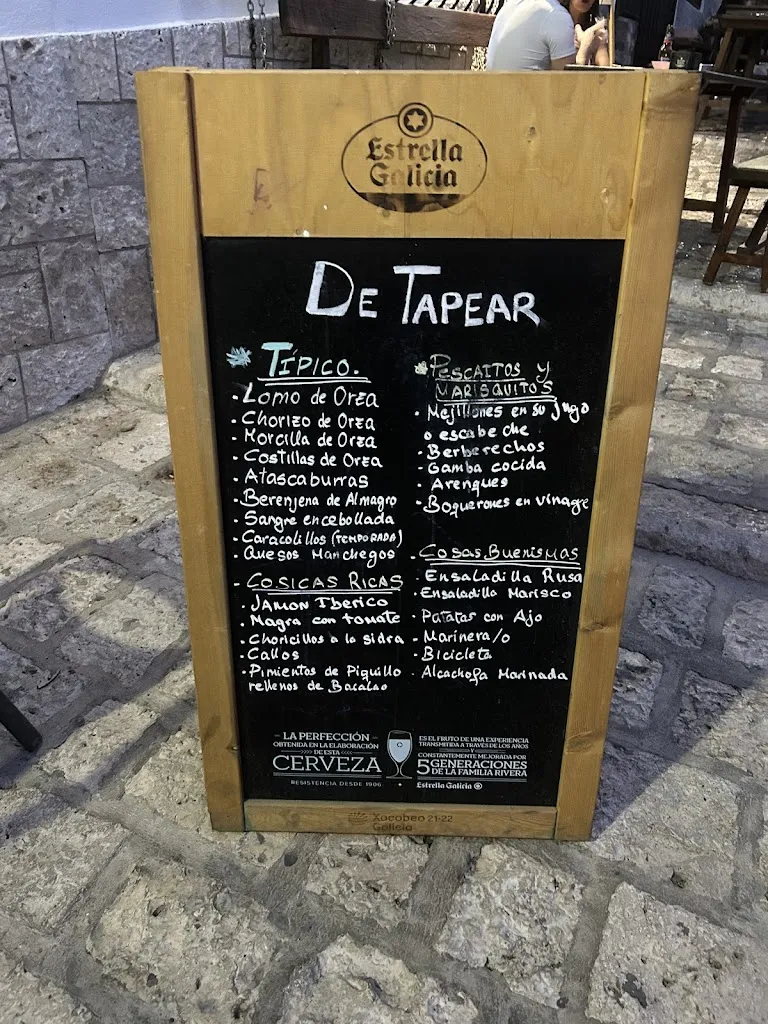 Estrella
Galicia
DE TAPEAR
TÍPICO.
· Lomo de Orza
· Chorizo de Orza
· Morcilla de Orza
· Costillas de Orza
· Atascaburras
· Berenjena de Almagro
· Sangre encebollada
· Caracolillos (TEMPORADA)
· Quesos Manchegos
- COSICAS RICAS
· JAMON IBERICO
· Magra con tomate
· Choricillos a la sidra
· Callos
· Pimientos de Piquillo
rellenos de Bacalao
PESCAITOS Y
MARISQUITOS
· Mejillones en su jugo
o escabeche
· Berberechos
· Gamba cocida
· Arenques
· Boquerones en vinagre
- COSAS BUENISMAS
· Ensaladilla Rusa
· Ensaladilla Marisco
· Patatas con Ajo
· Marinera/o
· Bicicleta
· Alcachofa Marinada
LA PERFECCIÓN
OBTENIDA EN LA ELABORACIÓN
DE ESTA
CERVEZA
RESISTENCIA DESDE 1906
ES EL FRUTO DE UNA EXPERIENCIA
TRANSMITIDA A TRAVÉS DE LOS AÑOS
Y
CONSTANTEMENTE MEJORADA POR
5 GENERACIONES
DE LA FAMILIA RIVERA
Estrella Galicia
Xacobeo 21·22
Galicia